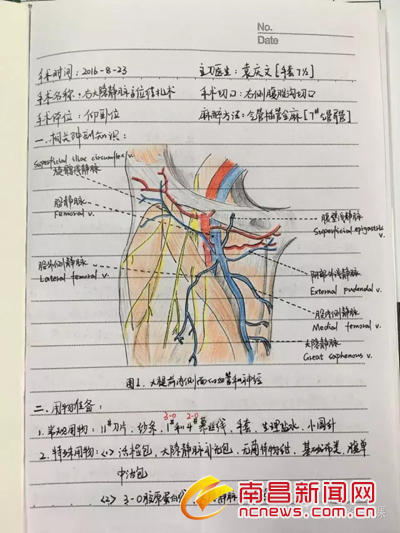 No.
Date
手术时间：2016-8-23 主刀医生：袁庆文［手套7½］
手术名称：右大隐静脉高位结扎术 手术切口：右侧腹股沟切口
手术体位：仰卧位 麻醉方法：全管插管全麻［7#
一、相关解剖知识：
Superficial iliac circumflex v.
旋髂浅静脉
股静脉
Femoral v.
股外侧静脉
Lateral femoral v.
腹壁浅静脉
Superficial epigastric v.
阴部外浅静脉
External pudendal v.
股内侧静脉
Medial femoral v.
大隐静脉
Great saphenous v.
图1. 大腿前内侧面浅血管和神经
二、用物准备：
3-0 2-0
1. 常规用物：11#刀片、纱条、1#和4#慕丝线、手套、生理盐水、小圆针
2. 特殊用物：<1> 清疝包、大隐静脉补充包、无菌持物钳、基础布类、腹单
中治包
<2> 3-0胶原蛋白线
南昌新闻网
ncnews.com.cn